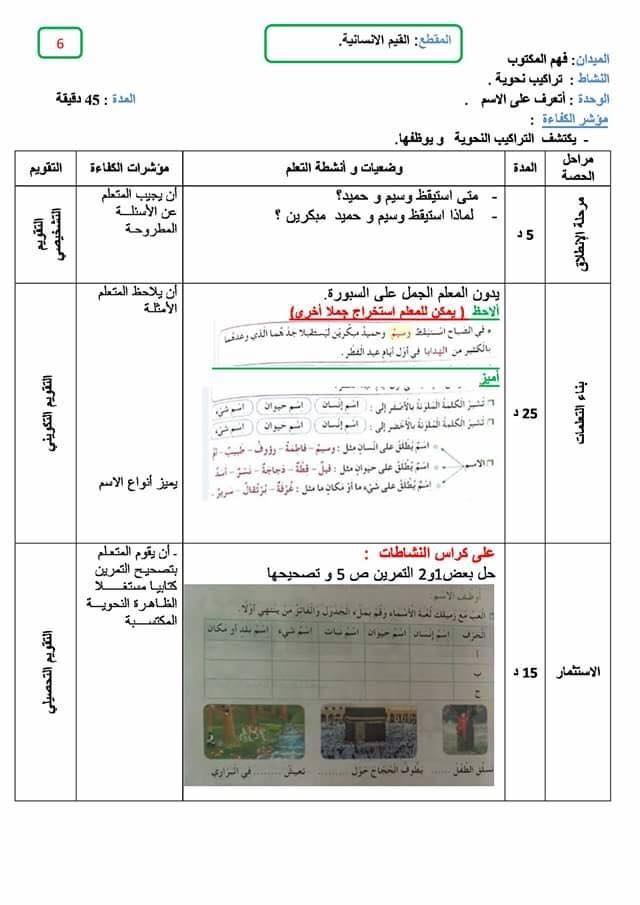 6
المقطع: القيم الانسانية.
الميدان: فهم المكتوب
النشاط : تراكيب نحوية .
الوحدة : أتعرف على الاسم .
المدة : 45 دقيقة
مؤشر الكفاءة :
- يكتشف التراكيب النحوية و يوظفها.
مراحل الحصة
المدة
وضعيات و أنشطة التعلم
مؤشرات الكفاءة
التقويم
مرحلة الإنطلاق
5 د
- متى استيقظ وسيم و حميد؟
- لماذا استيقظ وسيم و حميد مبكرين ؟
أن يجيب المتعلم
عن الأسئلة
المطروحة
التقويم التشخيصي
بناء التعلمات
25 د
يدون المعلم الجمل على السبورة.
ألاحظ ( يمكن للمعلم استخراج جملا أخرى)
في الصباح استيقظ وسيم وحميد مبكرين ليستقبلا جدهما الذي وعدهما
بالكثير من الهدايا في أول أيام عيد الفطر.
أميز
تشير الكلمة الملونة بالأصفر إلى : اسم إنسان اسم حيوان اسم شيء
تشير الكلمة الملونة بالأخضر إلى : اسم إنسان اسم حيوان اسم شيء
اسم يطلق على إنسان مثل : وسيم - فاطمة - رؤوف - طبيب
الاسم
اسم يطلق على حيوان مثل : فيل - قطة - دجاجة - نسر - أسد
اسم يطلق على شيء ما أو مكان ما مثل : غرفة - برتقال - سرير
أن يلاحظ المتعلم
الأمثلة
يميز أنواع الاسم
التقويم التكويني
الاستثمار
15 د
على كراس النشاطات :
حل بعض1و2 التمرين ص 5 و تصحيحها
أوظف الاسم.
العب مع زميلك لعبة الأسماء وقم بملء الجدول والفائز من ينتهي أولا.
الحرف اسم إنسان اسم حيوان اسم نبات اسم شيء اسم بلد أو مكان
أ
ب
ج
تسلق الطفل ...... يطوف الحجاج حول ........ تعيش ........ في البراري
- أن يقوم المتعلم
بتصحيح التمرين
كتابيا مستغلا
الظاهرة النحوية
المكتسبة
التقويم التحصيلي